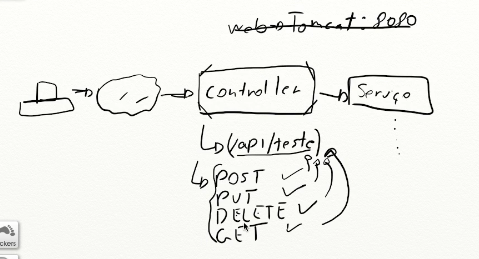 web → Tomcat: 8080
Controller
Serviço
(/api/teste)
POST
PUT
DELETE
GET
ckers